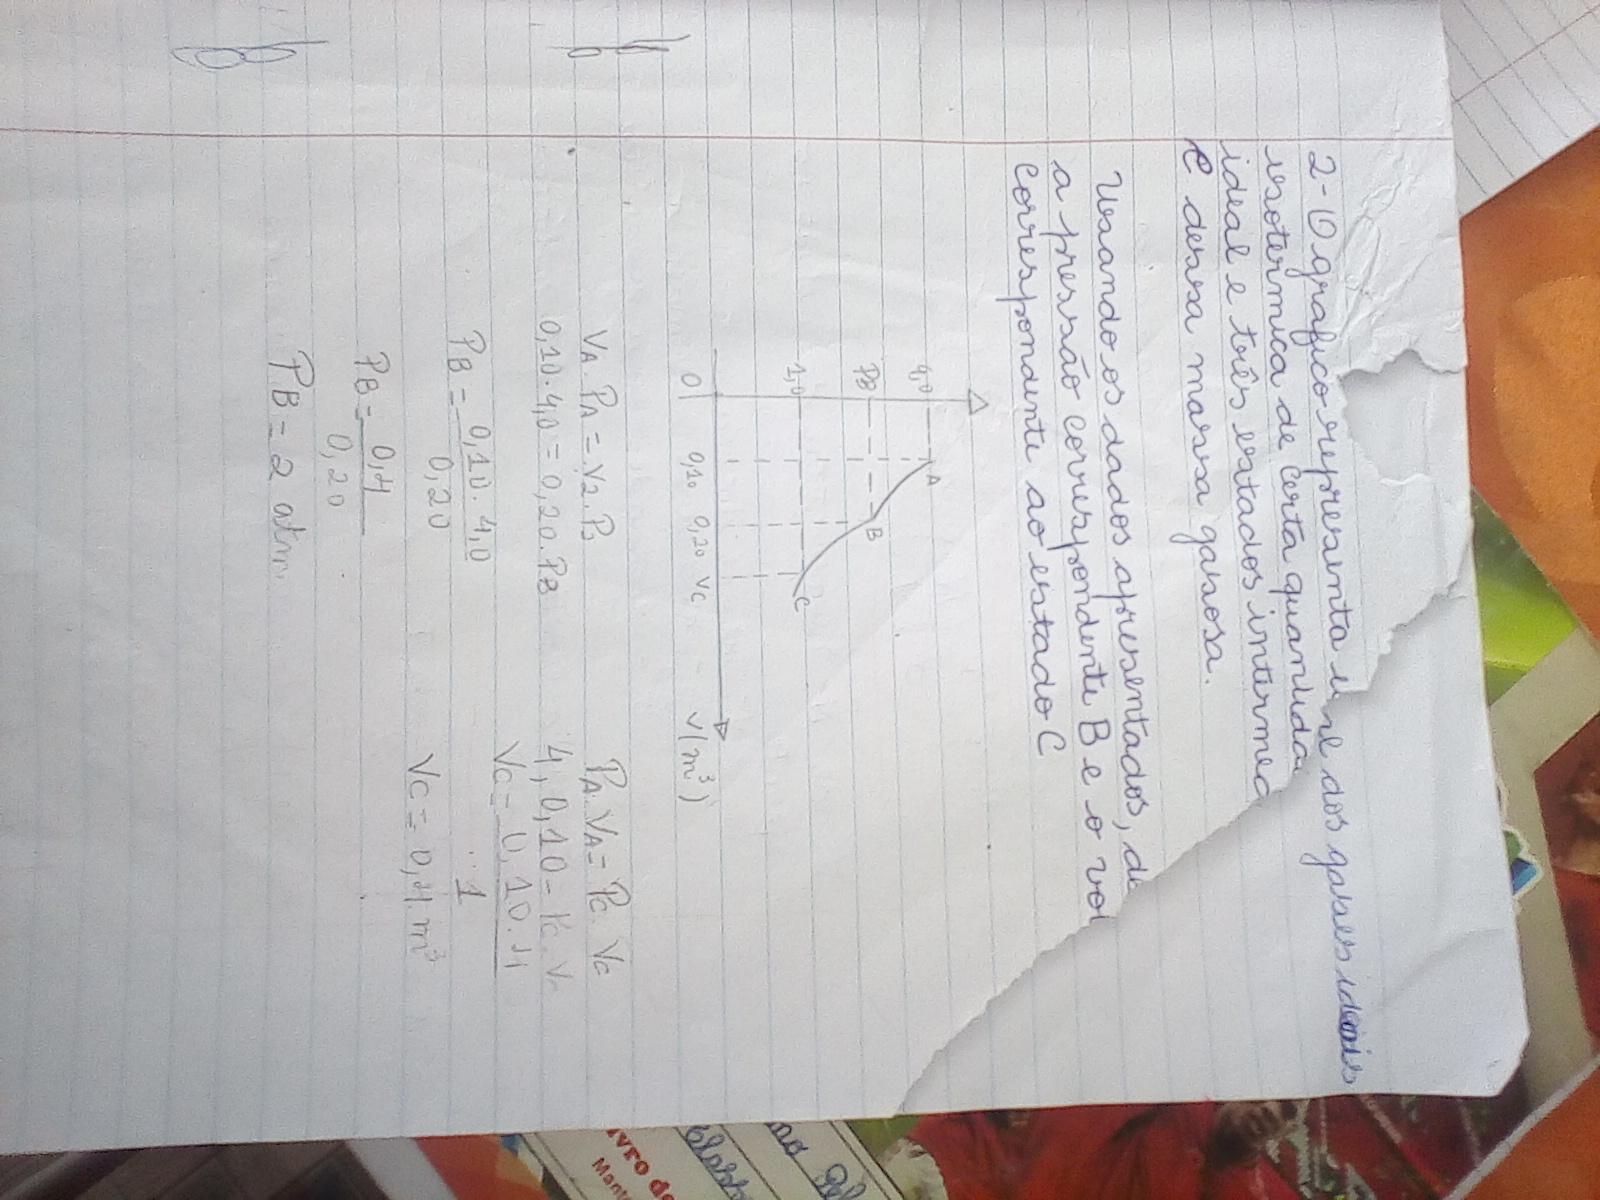 2- O grafico representa u nsl dos gases ideais
isotermica de certa quantidad
ideal e três estados intermed
e dessa massa gasosa.
Usando os dados apresentados, de
a pressão correspondente B e o vol
correspondente ao estado C
4,0
A
PB
B
1,0
C
0
0,10 0,20 Vc
V(m³)
VA. PA = V2. PB
0,10. 4,0 = 0,20. PB
PB = 0,10. 4,0
0,20
PB = 0,4
0,20
PB = 2 atm
PA. VA = Pc. Vc
4, 0,10 = Pc. Vc
Vc = 0,10. 4
1
Vc = 0,4 m³
ivro de